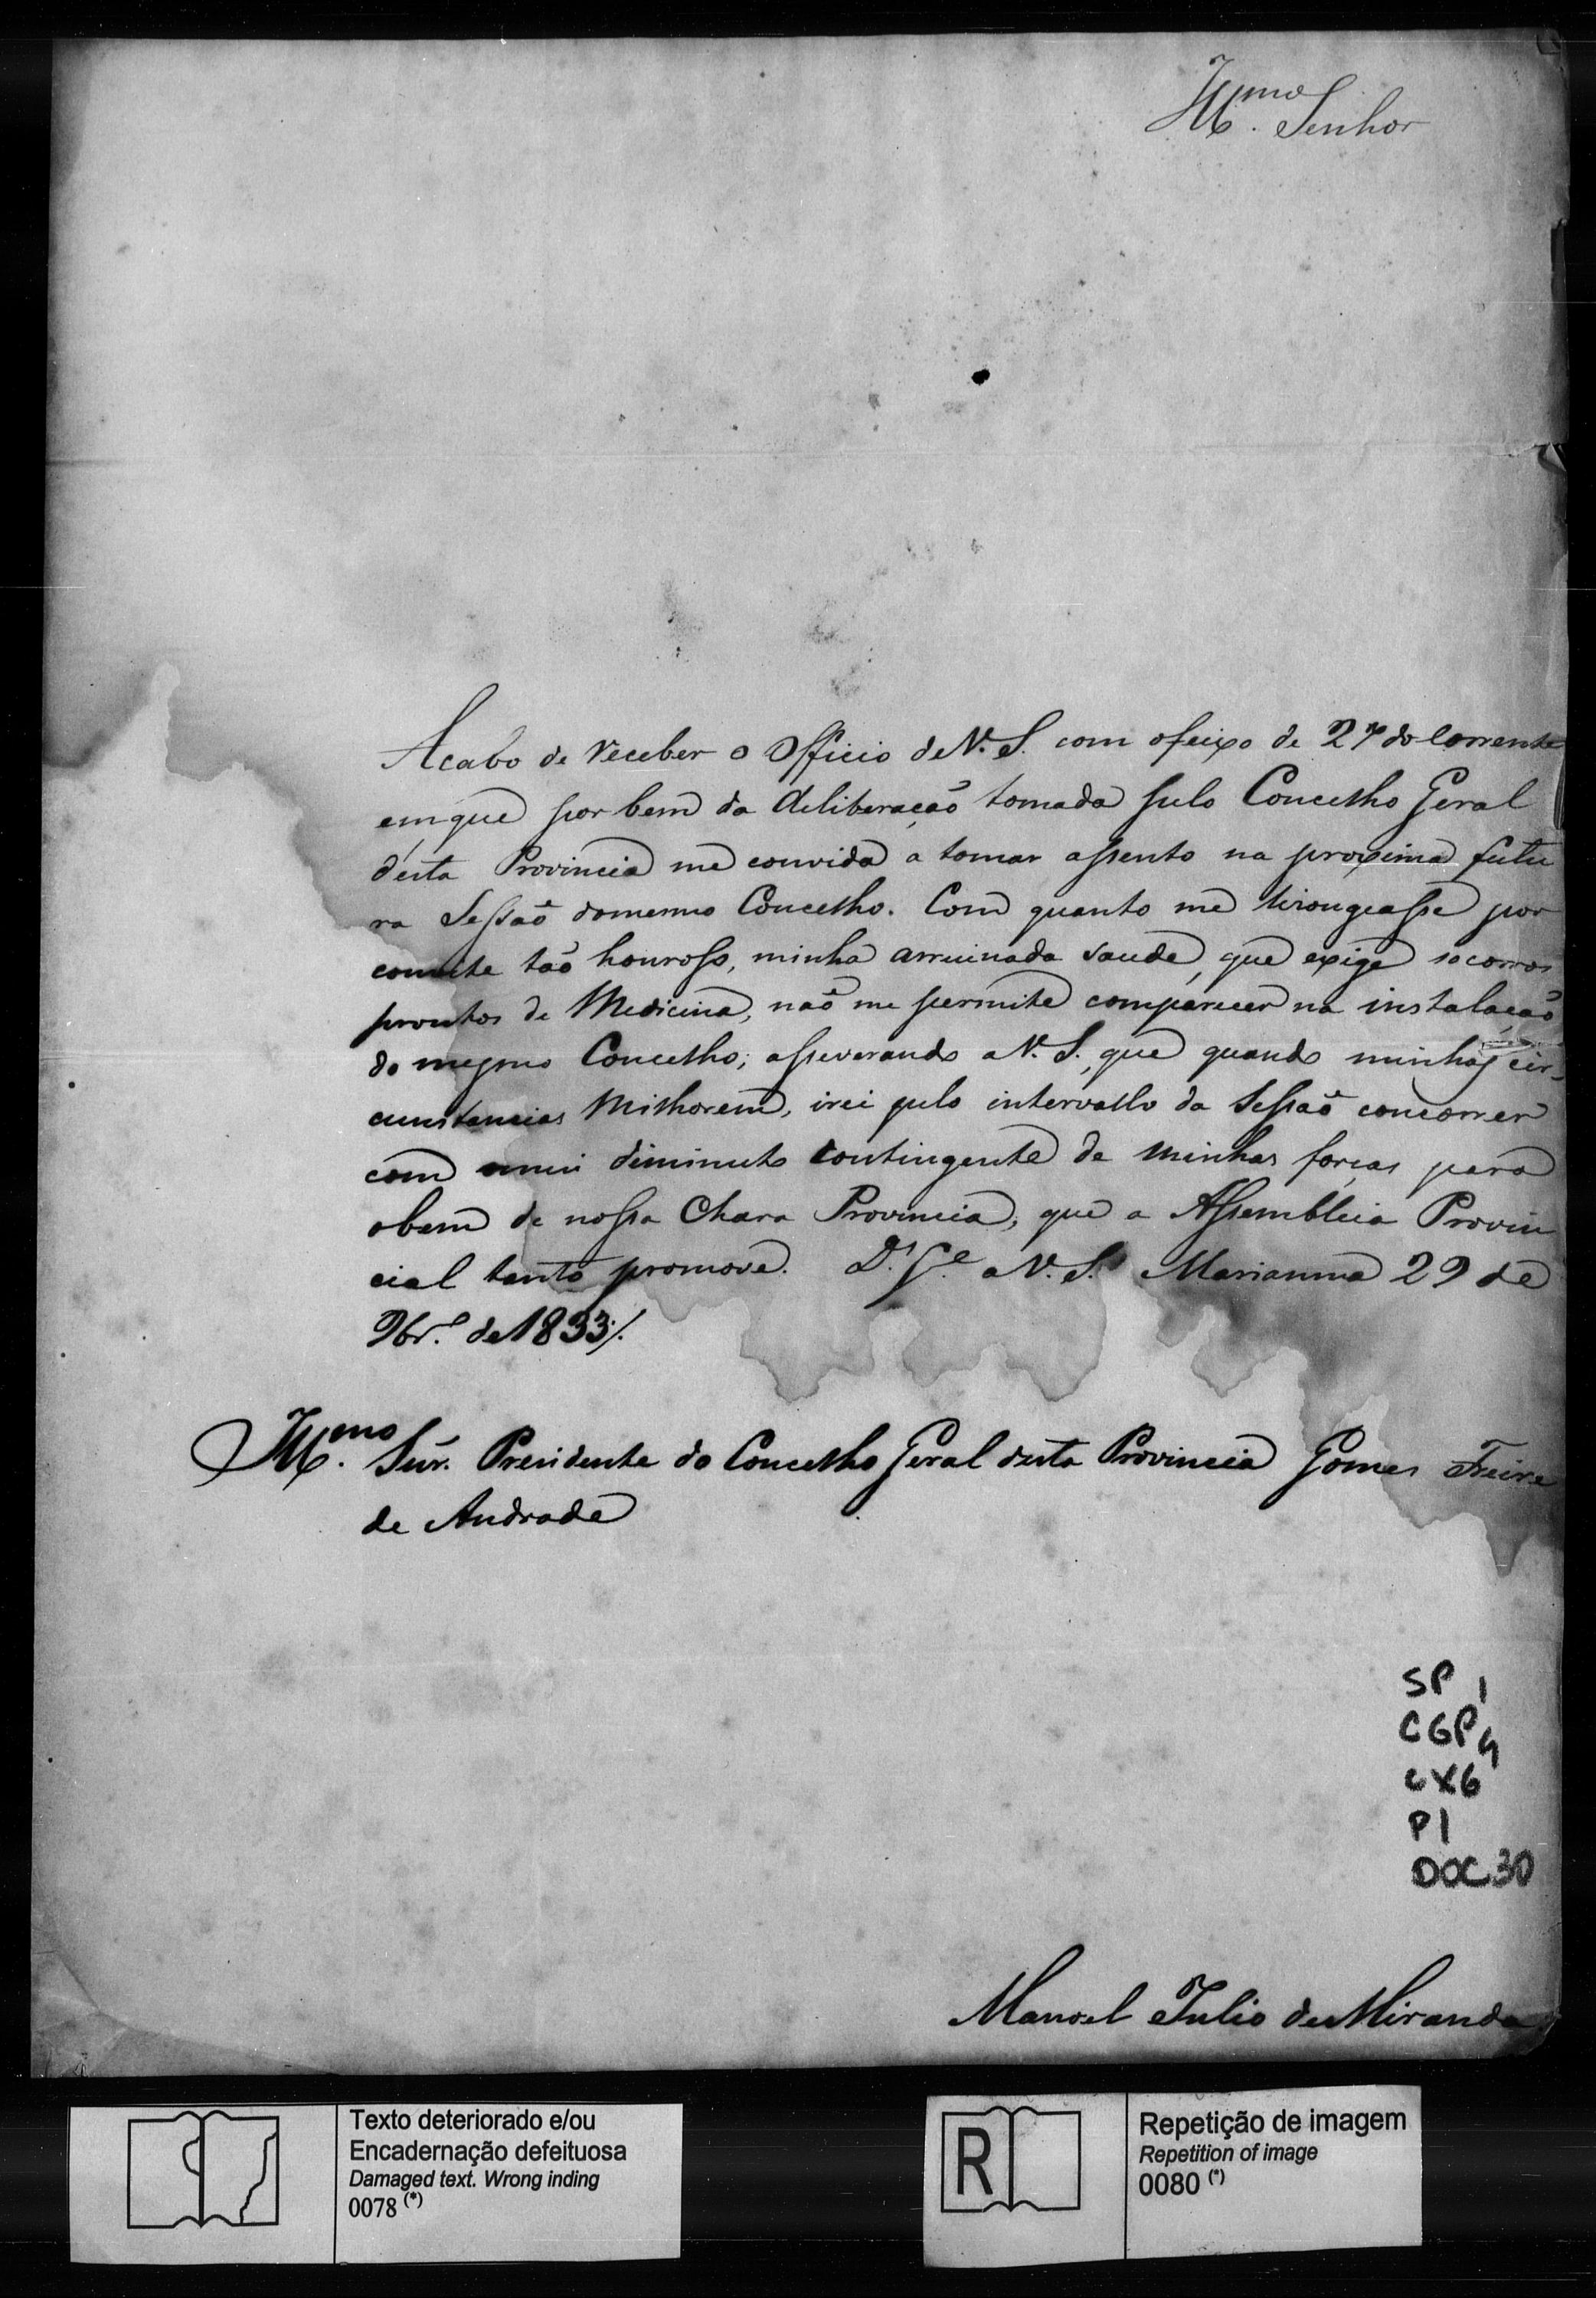 Ill.mo Senhor
Acabo de receber o Officio de V. S. com o feixo de 27 do corrente
em que por bem da deliberação tomada pelo Concelho Geral
desta Provincia me convida a tomar assento na proxima futu
ra Sessaõ do mesmo Concelho. Com quanto me lisongeasse por
convite taõ honroso, minha arruinada saude, que exige socorros
prontos de Medicina, naõ me permite comparecer na instalaçaõ
do mesmo Concelho; asseverando a V. S., que quando minhas cir-
cunstancias milhorem, irei pelo intervallo da Sessaõ concorrer
com mui diminuto contingente de minhas forças para
o bem de nossa Chara Provincia, que a Assembleia Provin
cial tanto promove. D.s G.e a V. S. Marianna 29 de
9br.o de 1833/.
Ill.mo Snr. Presidente do Concelho Geral desta Provincia Gomes Freire
de Andrade
SP 1
CGP 4
CX6
P1
DOC30
Manoel Julio de Miranda
Texto deteriorado e/ou
Encadernação defeituosa
Damaged text. Wrong inding
0078 (*)
R
Repetição de imagem
Repetition of image
0080 (*)